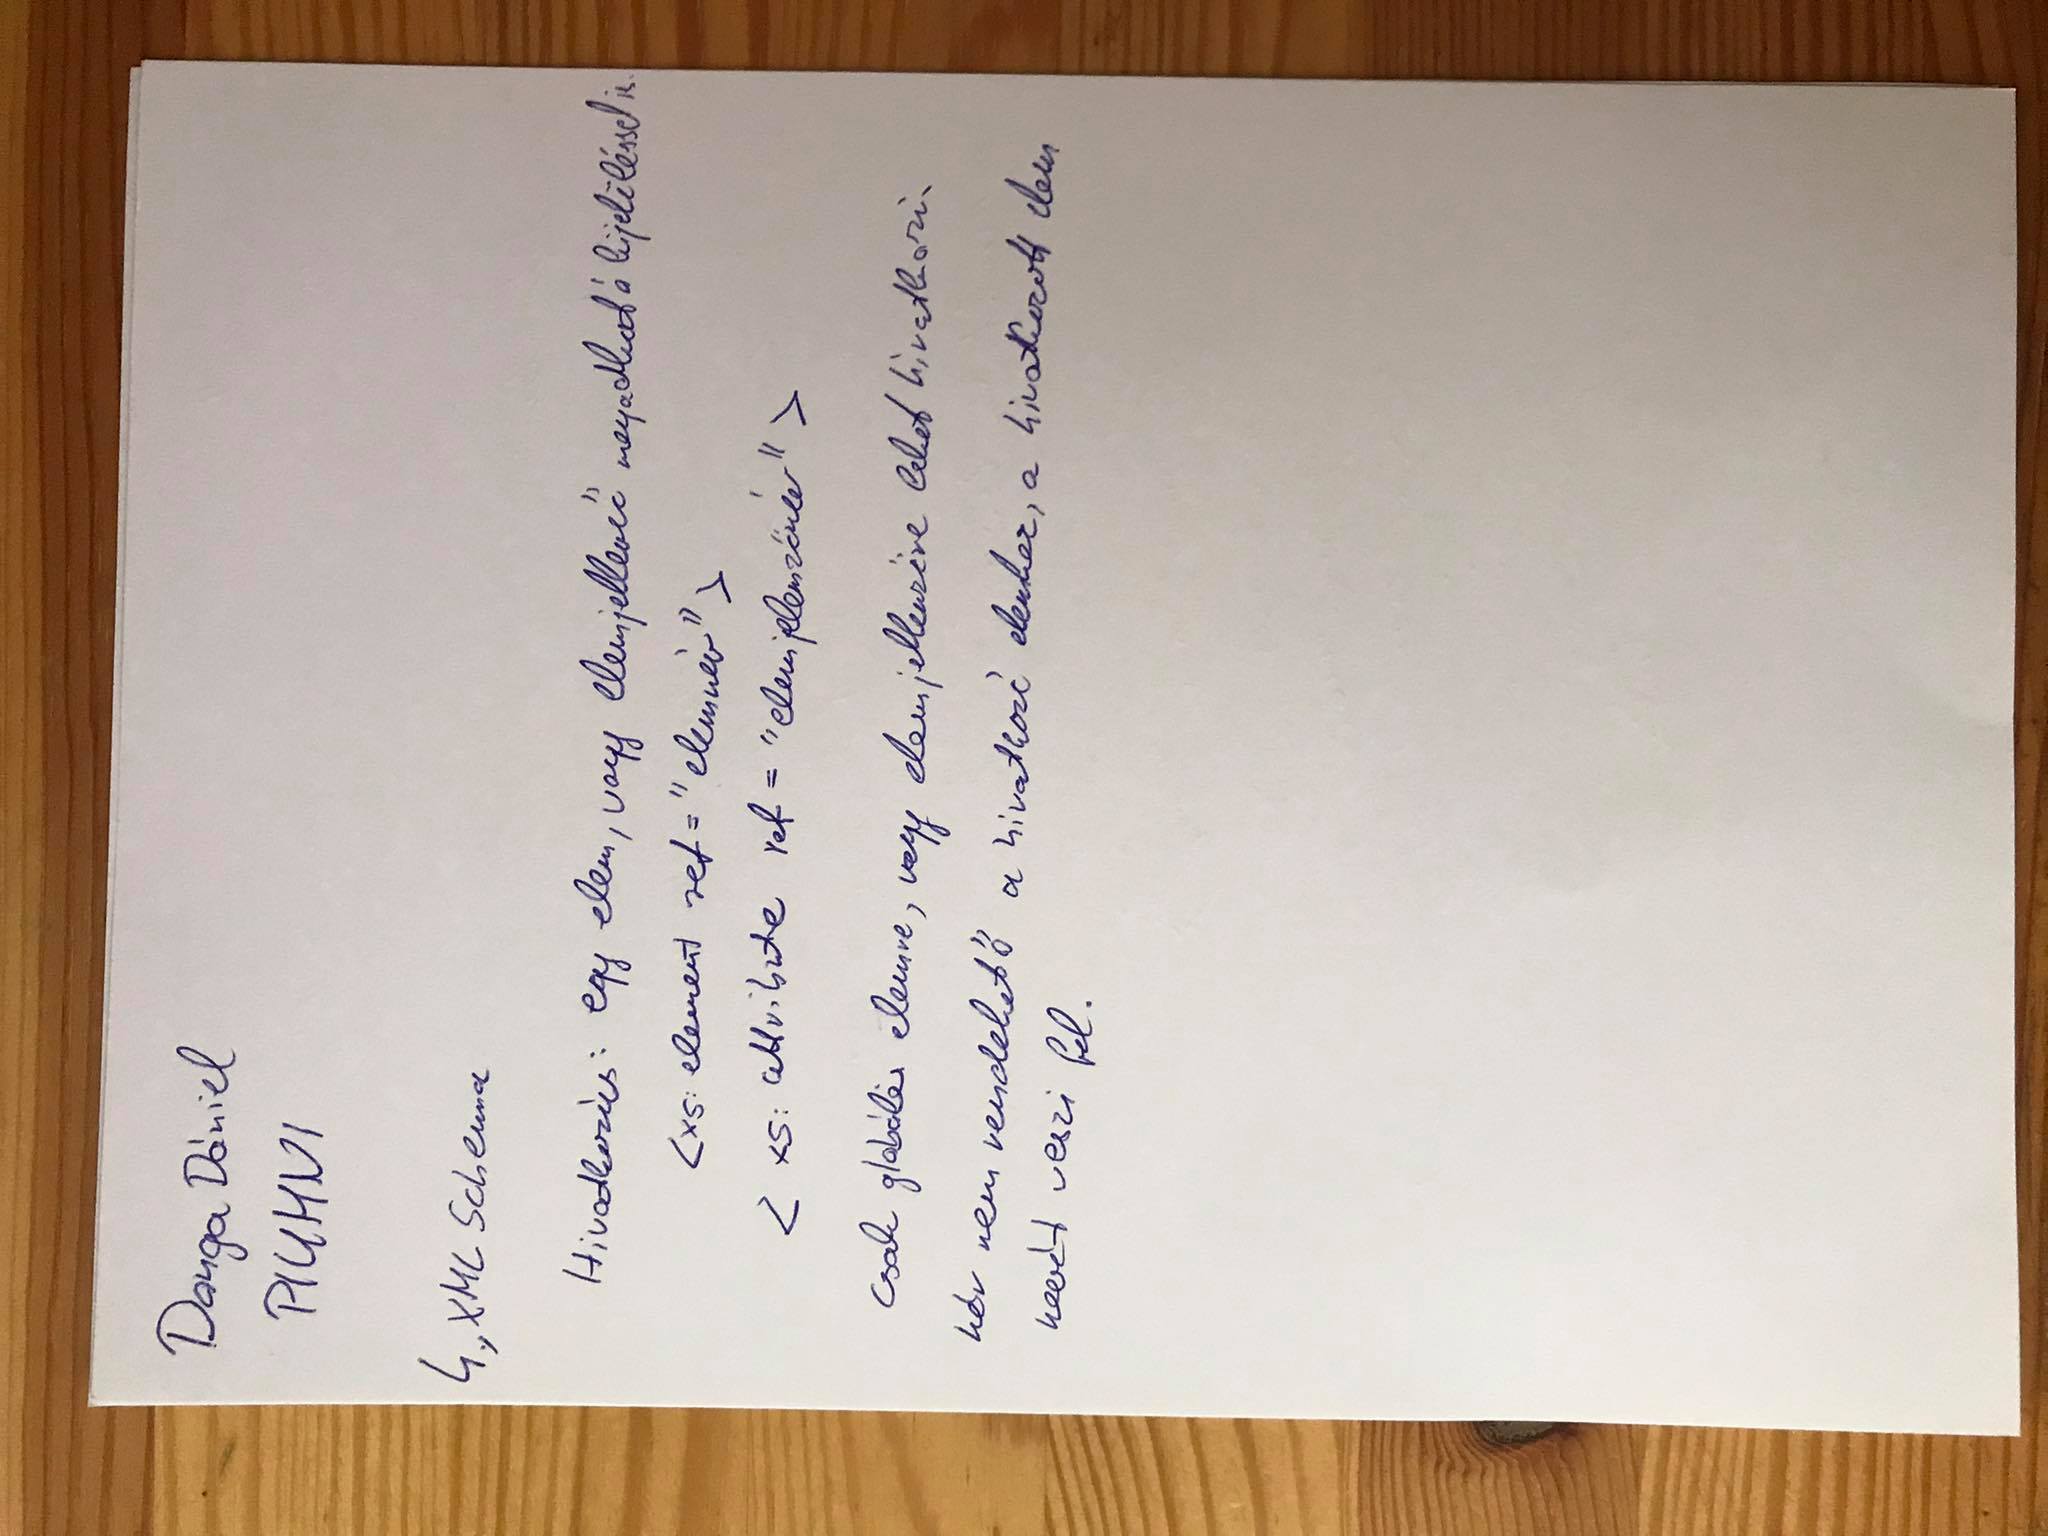 Danga Dániel
4,, XML Schema
Hivatkozás: egy elem, vagy elemjellemző megadható kijelöléssel is.
<xs: element ref="elemnév">
<xs: attribute ref="elemjellemzőnév">
Csak globális elemre, vagy elemjellemzőre lehet hivatkozni.
Név nem rendelhető a hivatkozó elemhez, a hivatkozott elem
nevét veszi fel.